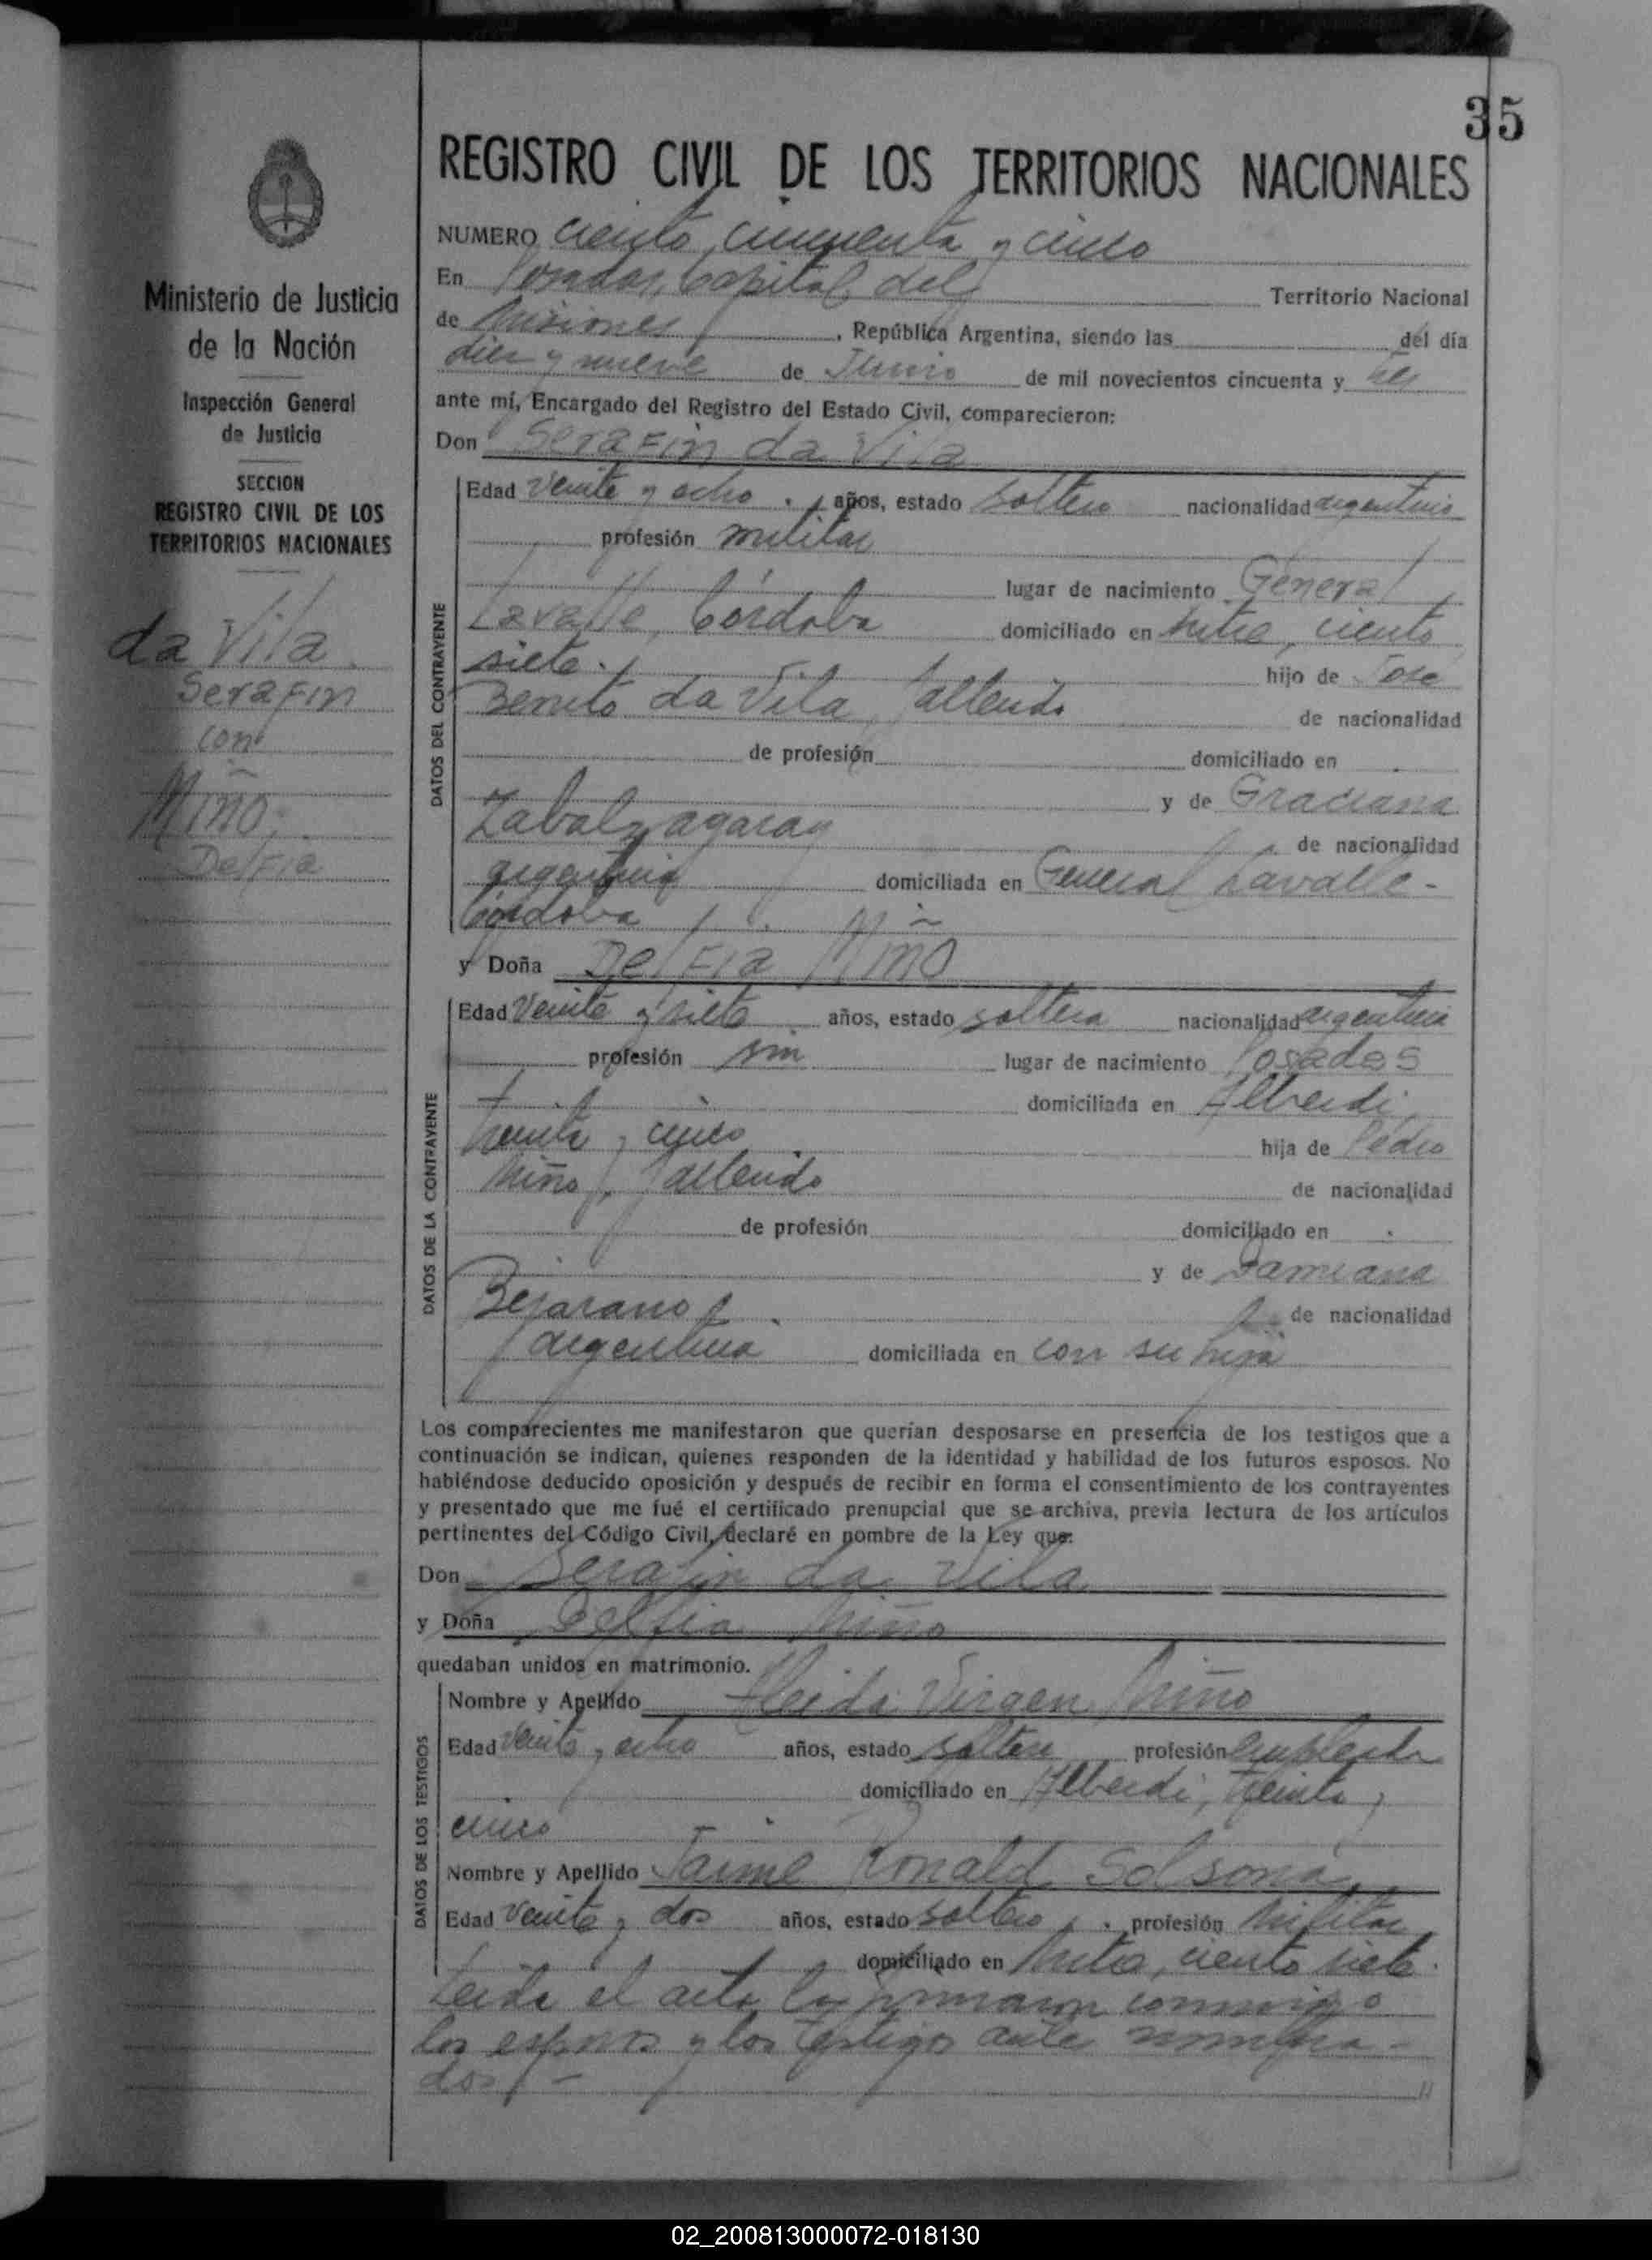 35
REGISTRO CIVIL DE LOS TERRITORIOS NACIONALES
NUMERO ciento cincuenta y cinco
En Posadas, Capital del Territorio Nacional
de Misiones, República Argentina, siendo las del día
diez y nueve de Junio de mil novecientos cincuenta y tres
ante mí, Encargado del Registro del Estado Civil, comparecieron:
Don Serafin da Vila
Edad veinte y ocho años, estado soltero nacionalidad argentino
profesión militar
lugar de nacimiento General
Lavalle, Córdoba domiciliado en Mitre, ciento
siete. hijo de José
Benito da Vila, fallecido de nacionalidad
de profesión domiciliado en
y de Graciana
Zabalzagaray de nacionalidad
argentina domiciliada en General Lavalle-
Córdoba
y Doña Delfia Miño
Edad veinte y siete años, estado soltera nacionalidad argentina
profesión sin lugar de nacimiento Posadas
domiciliada en Alberdi,
treinta y cinco hija de Pedro
Miño, fallecido de nacionalidad
de profesión domiciliado en
y de Damiana
Bejarano de nacionalidad
argentina domiciliada en con su hija
Los comparecientes me manifestaron que querían desposarse en presencia de los testigos que a
continuación se indican, quienes responden de la identidad y habilidad de los futuros esposos. No
habiéndose deducido oposición y después de recibir en forma el consentimiento de los contrayentes
y presentado que me fué el certificado prenupcial que se archiva, previa lectura de los artículos
pertinentes del Código Civil, declaré en nombre de la Ley que:
Don Serafin da Vila
y Doña Delfia Miño
quedaban unidos en matrimonio.
Nombre y Apellido Virgen Miño
Edad veinte y ocho años, estado soltera profesión empleada
domiciliado en Alberdi, treinta y
cinco
Nombre y Apellido Jaime Ronald Solsona
Edad veinte y dos años, estado soltero profesión militar
domiciliado en Mitre, ciento siete.
Leida el acta la firmaron conmigo
los esposos y los testigos ante nombra-
dos.-
DATOS DEL CONTRAYENTE
DATOS DE LA CONTRAYENTE
DATOS DE LOS TESTIGOS
Ministerio de Justicia
de la Nación
Inspección General
de Justicia
SECCION
REGISTRO CIVIL DE LOS
TERRITORIOS NACIONALES
da Vila
Serafin
con
Miño,
Delfia
02_200813000072-018130